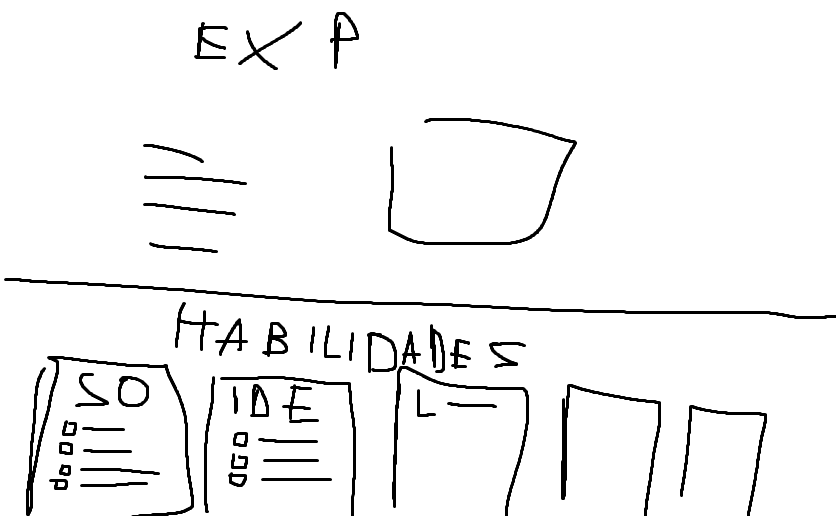 EXP
HABILIDADES
SO
IDE
L